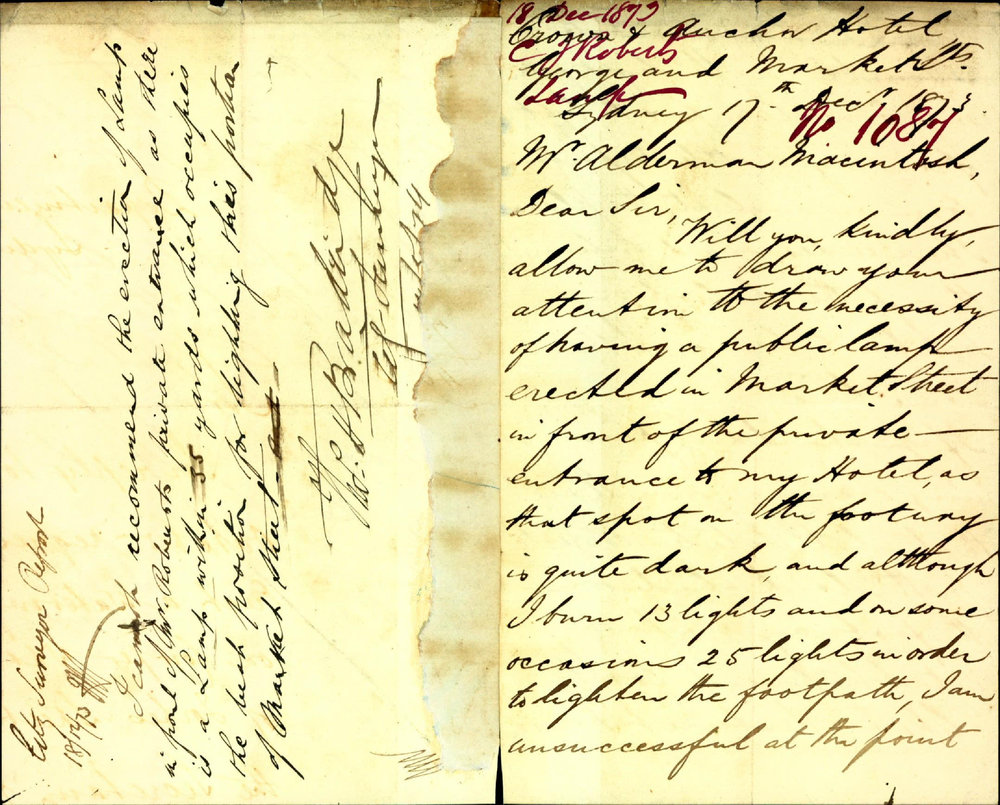 18 Dec 1873
C J Roberts
Lamp
No 1087
Crown & Anchor Hotel
George and Market Sts.
Sydney 17th Decr 1873
Mr. Alderman Macintosh,
Dear Sir,
Will you, kindly,
allow me to draw your
attention to the necessity
of having a public lamp
erected in Market Street
in front of the private
entrance to my Hotel, as
that spot on the footway
is quite dark, and although
I burn 13 lights and on some
occasions 25 lights in order
to lighten the footpath, I am
unsuccessful at the point
City Surveyor Report
18/12/73
I cannot recommend the erection of Lamp
in front of Mr Roberts private entrance as there
is a Lamp within 35 yards which occupies
the best position for lighting this portion
of Market Street
Bradridge
City Surveyor